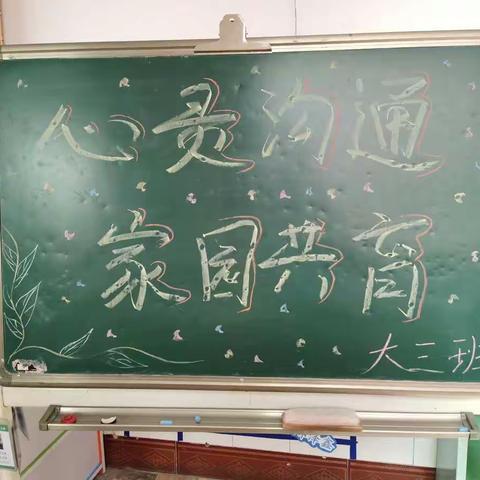 心灵沟通
家园共育
大三班